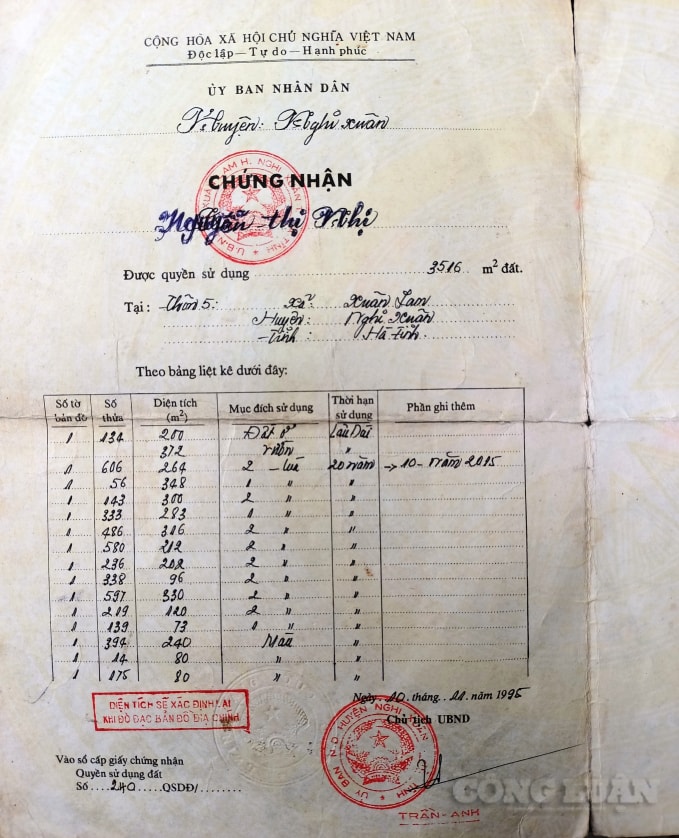 CỘNG HÒA XÃ HỘI CHỦ NGHĨA VIỆT NAM
Độc lập — Tự do — Hạnh phúc
ỦY BAN NHÂN DÂN
Huyện: Nghi xuân
CHỨNG NHẬN
Nguyễn thị Nhị
Được quyền sử dụng 3516 m² đất.
Tại: Thôn 5: xã: Xuân Lam
Huyện: Nghi Xuân
Tỉnh: Hà Tĩnh.
Theo bảng liệt kê dưới đây:
Số tờ bản đồ Số thửa Diện tích (m²) Mục đích sử dụng Thời hạn sử dụng Phần ghi thêm
1 134 200 Đất ở Lâu Dài
372 vườn "
1 606 264 2 - lúa 20 năm → 10 - năm 2015
1 56 348 1 " "
1 143 300 2 " "
1 333 283 1 " "
1 486 316 2 " "
1 580 212 2 " "
1 236 202 2 " "
1 338 96 2 " "
1 597 330 2 " "
1 219 120 2 " "
1 139 73 1 " "
1 394 240 Màu "
1 14 80 " "
1 175 80 " "
DIỆN TÍCH SẼ XÁC ĐỊNH LẠI
KHI ĐO ĐẠC BẢN ĐỒ ĐỊA CHÍNH
Ngày 10 tháng 11 năm 1995
Chủ tịch UBND
Vào sổ cấp giấy chứng nhận
Quyền sử dụng đất
Số 240 QSDĐ/
TRẦN - ANH
CÔNG LUẬN